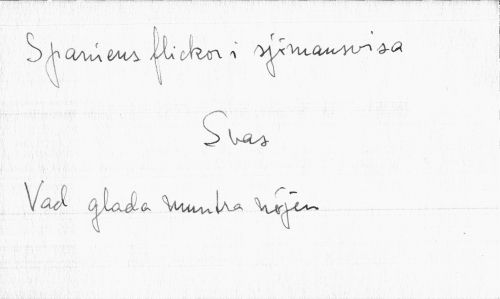 Spaniens flickor i sjömansvisa
Svas
Vad glada muntra nöjen